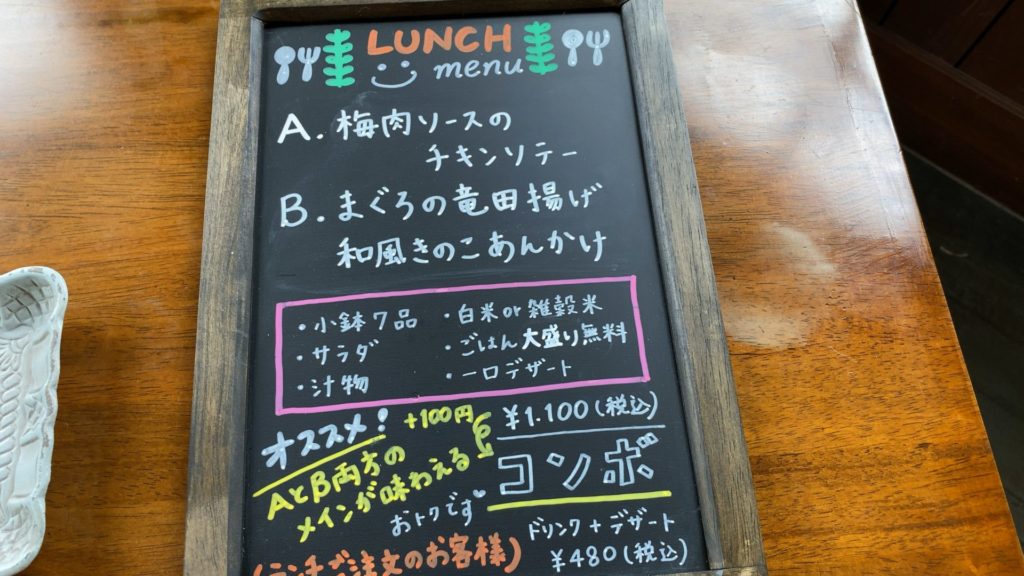 LUNCH
menu
A. 梅肉ソースの
チキンソテー
B. まぐろの竜田揚げ
和風きのこあんかけ
・小鉢7品
・サラダ
・汁物
・白米or雑穀米
・ごはん大盛り無料
・一口デザート
¥1.100(税込)
オススメ!
+100円
AとB両方の
メインが味わえる
コンボ
おトクです
(ランチご注文のお客様)
ドリンク+デザート
¥480(税込)